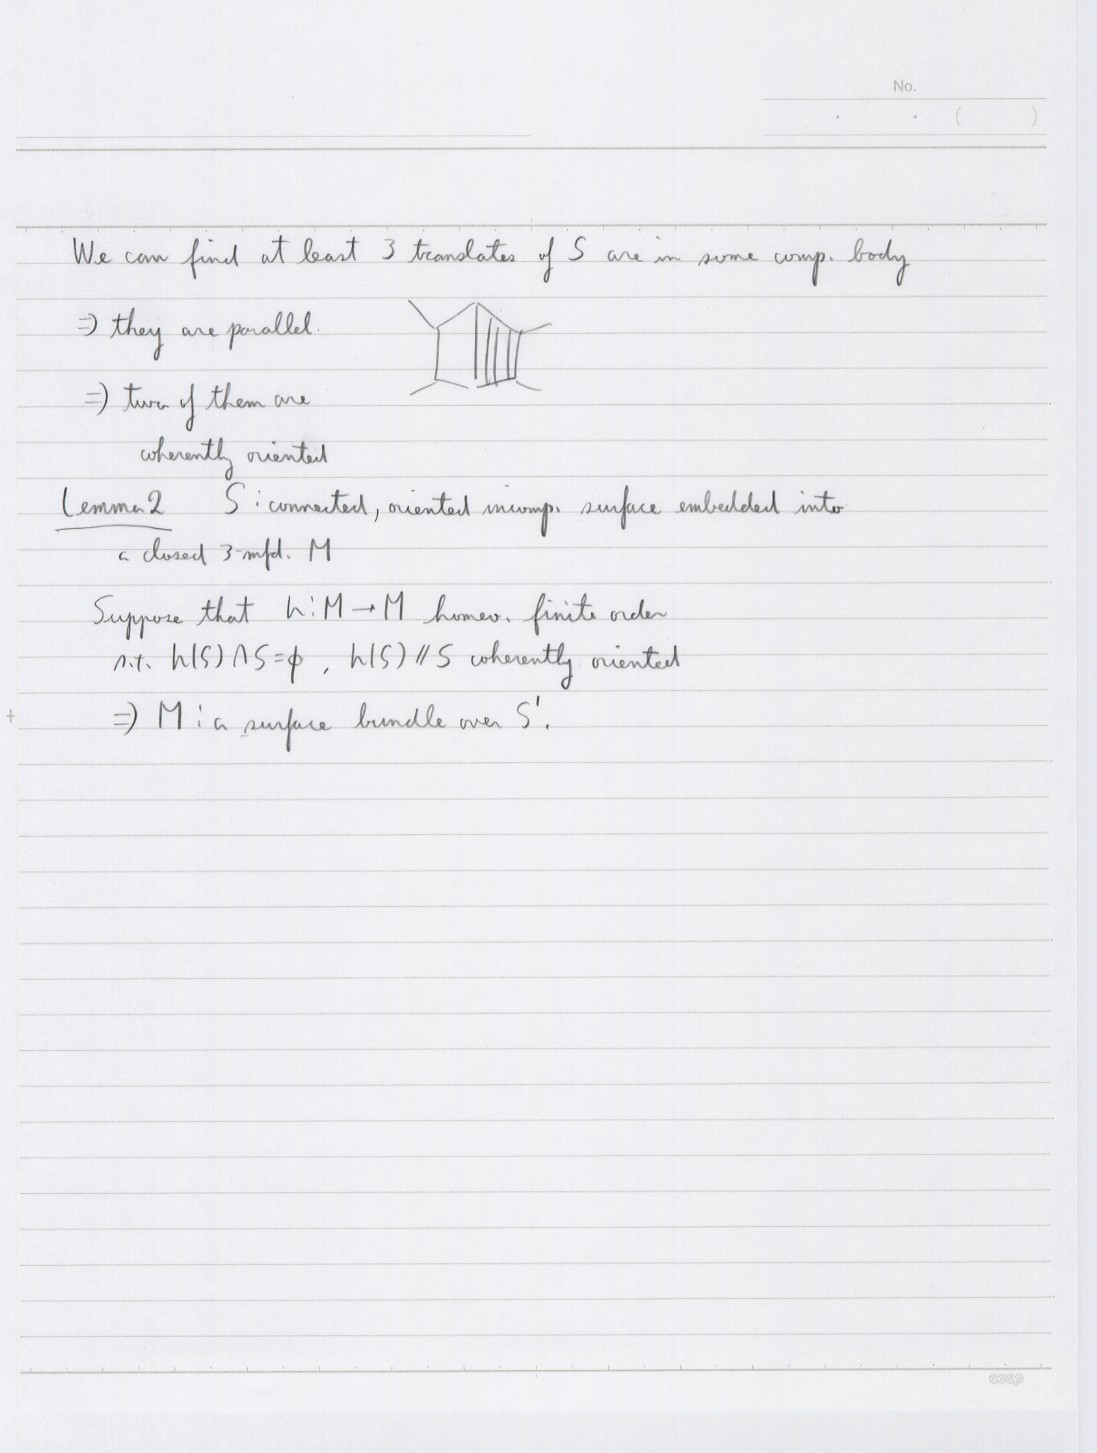 No.
. . ( )
We can find at least 3 translates of S are in some comp. body
⇒ they are parallel.
⇒ two of them are
coherently oriented
Lemma 2 S : connected, oriented incomp. surface embedded into
a closed 3-mfd. M
Suppose that h : M → M homeo. finite order
s.t. h(S) ∩ S = φ , h(S) // S coherently oriented
⇒ M : a surface bundle over S¹.
coop